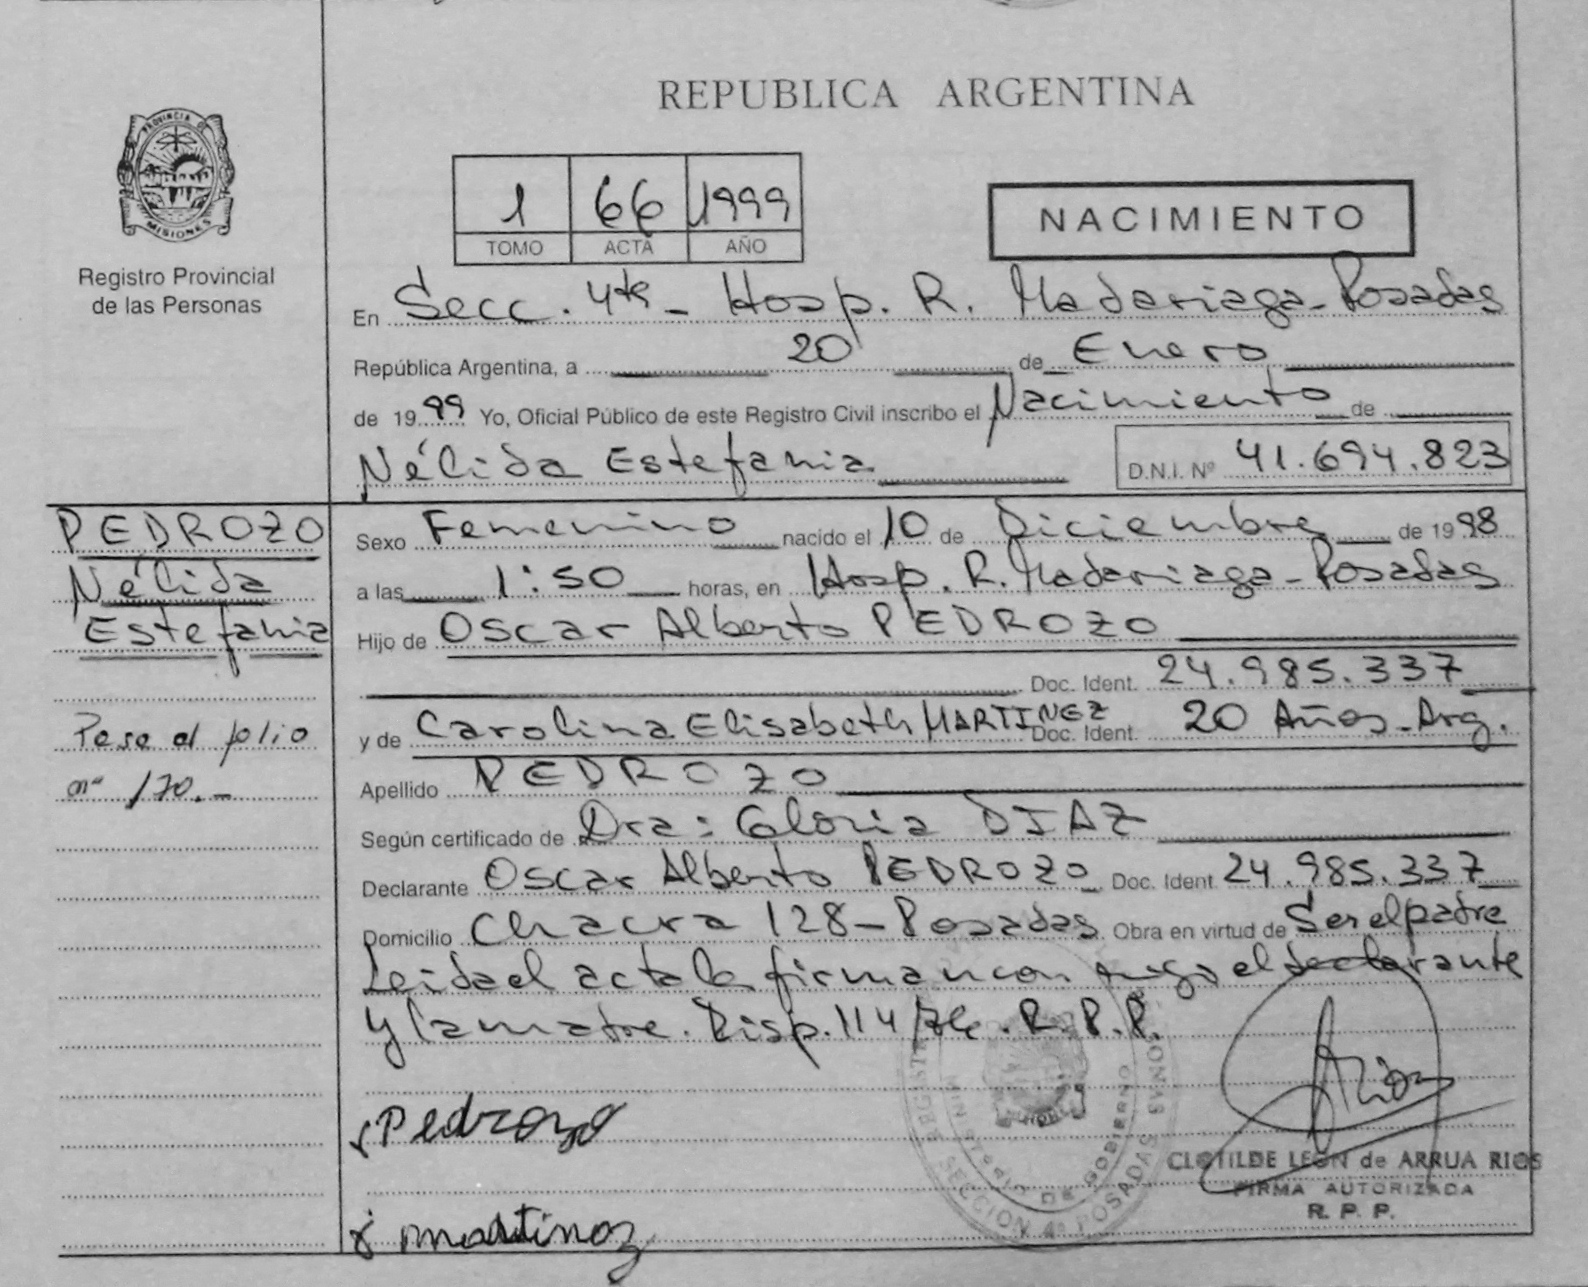 REPUBLICA ARGENTINA
PROVINCIA DE
MISIONES
Registro Provincial
de las Personas
1 66 1999
TOMO ACTA AÑO
NACIMIENTO
En Secc. 4ta - Hosp. R. Madariaga - Posadas
República Argentina, a 20 de Enero
de 1999 Yo, Oficial Público de este Registro Civil inscribo el Nacimiento de
Nélida Estefania D.N.I. Nº 41.694.823
PEDROZO
Nélida
Estefania
Pase al folio
nº 170.-
Sexo Femenino nacido el 10 de Diciembre de 1998
a las 1:50 horas, en Hosp. R. Madariaga - Posadas
Hijo de Oscar Alberto PEDROZO
Doc. Ident. 24.985.337
y de Carolina Elisabeth MARTINEZ Doc. Ident. 20 Años - Arg.
Apellido PEDROZO
Según certificado de Dra: Gloria DIAZ
Declarante Oscar Alberto PEDROZO Doc. Ident 24.985.337
Domicilio Chacra 128 - Posadas Obra en virtud de Ser el padre
Leida el acta la firman con migo el declarante
y la madre. Disp. 114/ R.P.P.
Pedrozo
martinez
MINISTERIO DE GOBIERNO
SECCION 4ª POSADAS
CLOTILDE LEON de ARRUA RIOS
FIRMA AUTORIZADA
R. P. P.